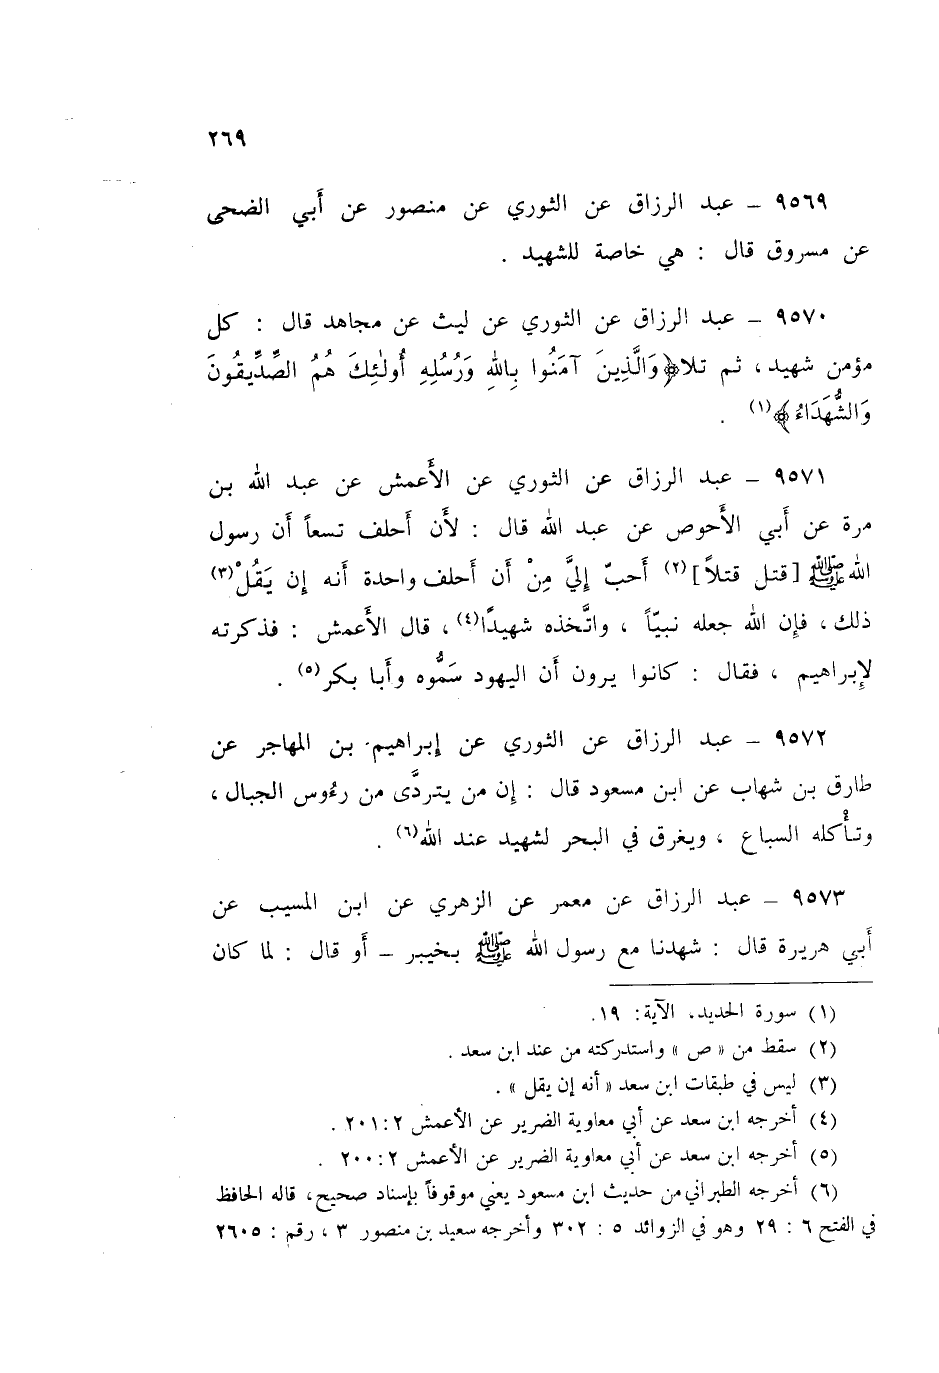 ٢٦٩
٩٥٦٩ – عبد الرزاق عن الثوري عن منصور عن أَبي الضحى
عن مسروق قال : هي خاصة للشهيد .
٩٥٧٠ – عبد الرزاق عن الثوري عن ليث عن مجاهد قال : كل
مؤمن شهيد ، ثم تلا﴿وَالَّذِينَ آمَنُوا بِاللهِ وَرُسُلِهِ أُولٰئِكَ هُمُ الصِّدِّيقُونَ
وَالشُّهَدَاءُ﴾(١) .
٩٥٧١ – عبد الرزاق عن الثوري عن الأَعمش عن عبد الله بن
مرة عن أَبي الأَحوص عن عبد الله قال : لأَن أَحلف تسعاً أَن رسول
الله ﷺ [قتل قتلاً](٢) أَحبّ إِليَّ مِنْ أَن أَحلف واحدة أَنه إِن يَقُلْ(٣)
ذلك ، فإِن الله جعله نبيّاً ، واتَّخذه شهيدًا(٤) ، قال الأَعمش : فذكرته
لإِبراهيم ، فقال : كانوا يرون أَن اليهود سَمُّوه وأَبا بكر(٥) .
٩٥٧٢ – عبد الرزاق عن الثوري عن إِبراهيم بن المهاجر عن
طارق بن شهاب عن ابن مسعود قال : إِن من يتردَّى من رءُوس الجبال ،
وتأْكله السباع ، ويغرق في البحر لشهيد عند الله(٦) .
٩٥٧٣ – عبد الرزاق عن معمر عن الزهري عن ابن المسيب عن
أَبي هريرة قال : شهدنا مع رسول الله ﷺ بخيبر – أَو قال : لما كان
(١) سورة الحديد، الآية: ١٩.
(٢) سقط من « ص » واستدركته من عند ابن سعد .
(٣) ليس في طبقات ابن سعد « أنه إن يقل » .
(٤) أخرجه ابن سعد عن أبي معاوية الضرير عن الأعمش ٢ : ٢٠١ .
(٥) أخرجه ابن سعد عن أبي معاوية الضرير عن الأعمش ٢ : ٢٠٠ .
(٦) أخرجه الطبراني من حديث ابن مسعود يعني موقوفاً بإسناد صحيح، قاله الحافظ
في الفتح ٦ : ٢٩ وهو في الزوائد ٥ : ٣٠٢ وأخرجه سعيد بن منصور ٣ ، رقم : ٢٦٠٥